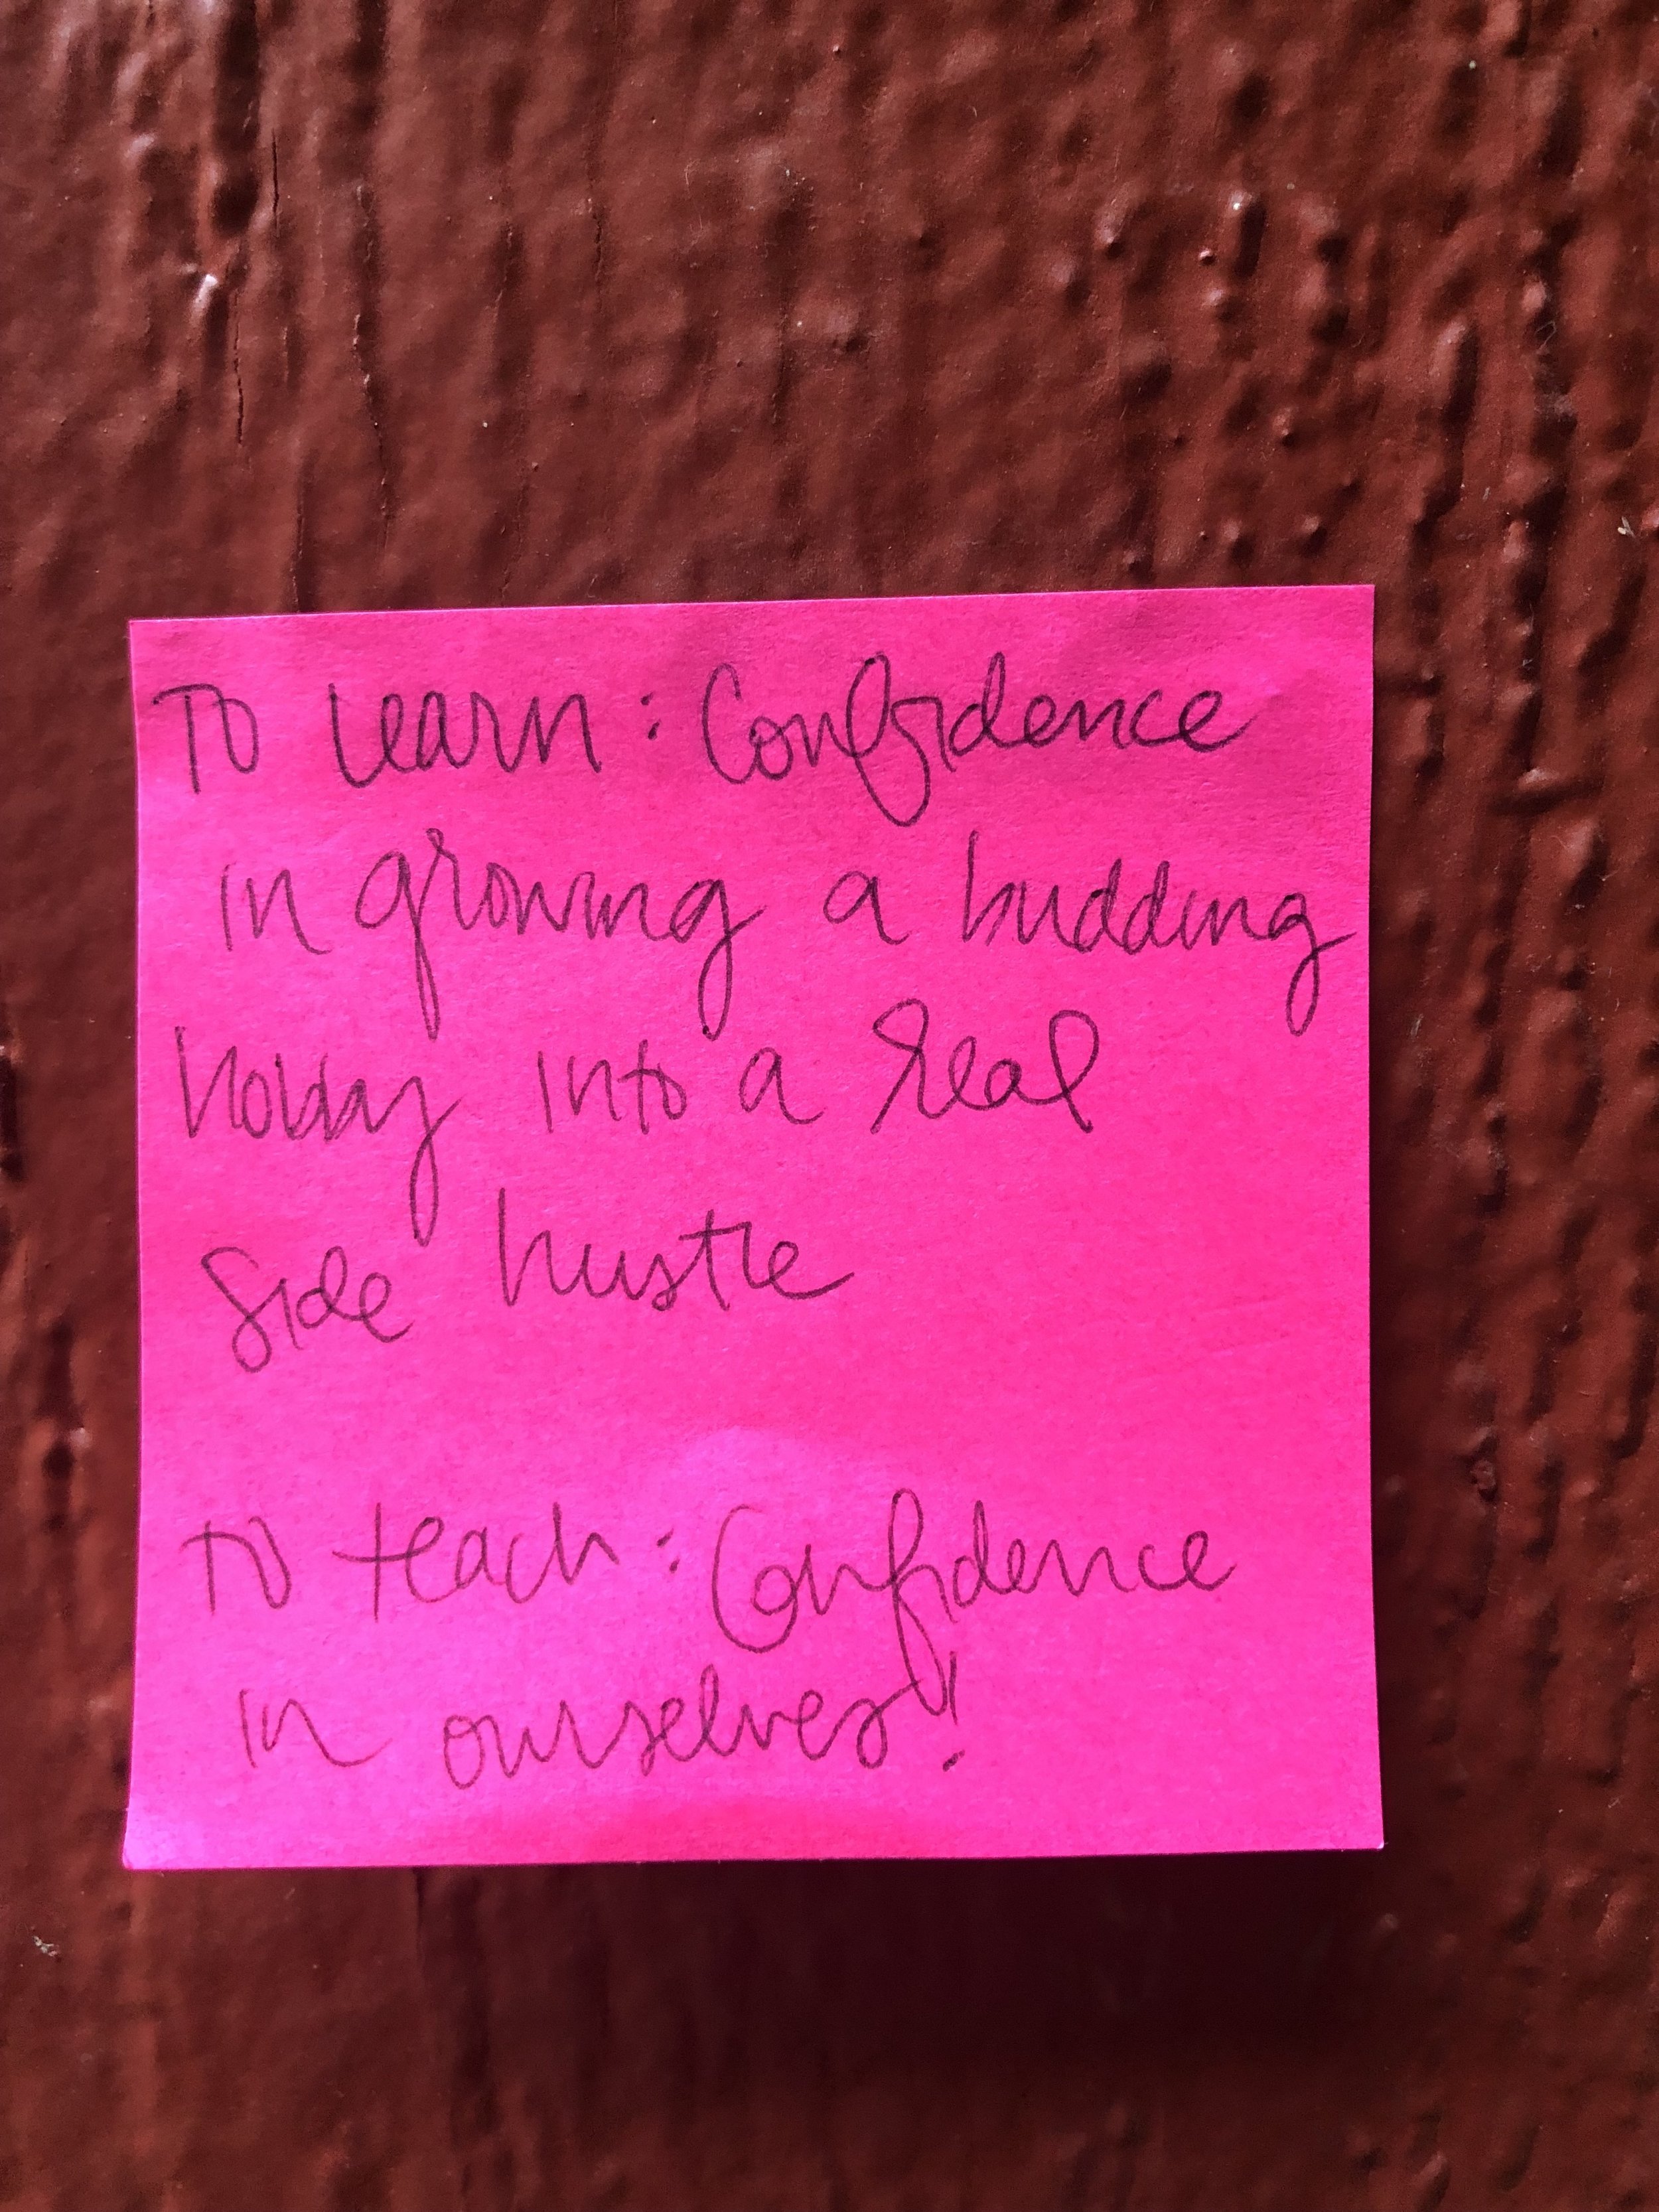 To learn: Confidence
in growing a budding
hobby into a real
side hustle
To teach: Confidence
in ourselves!